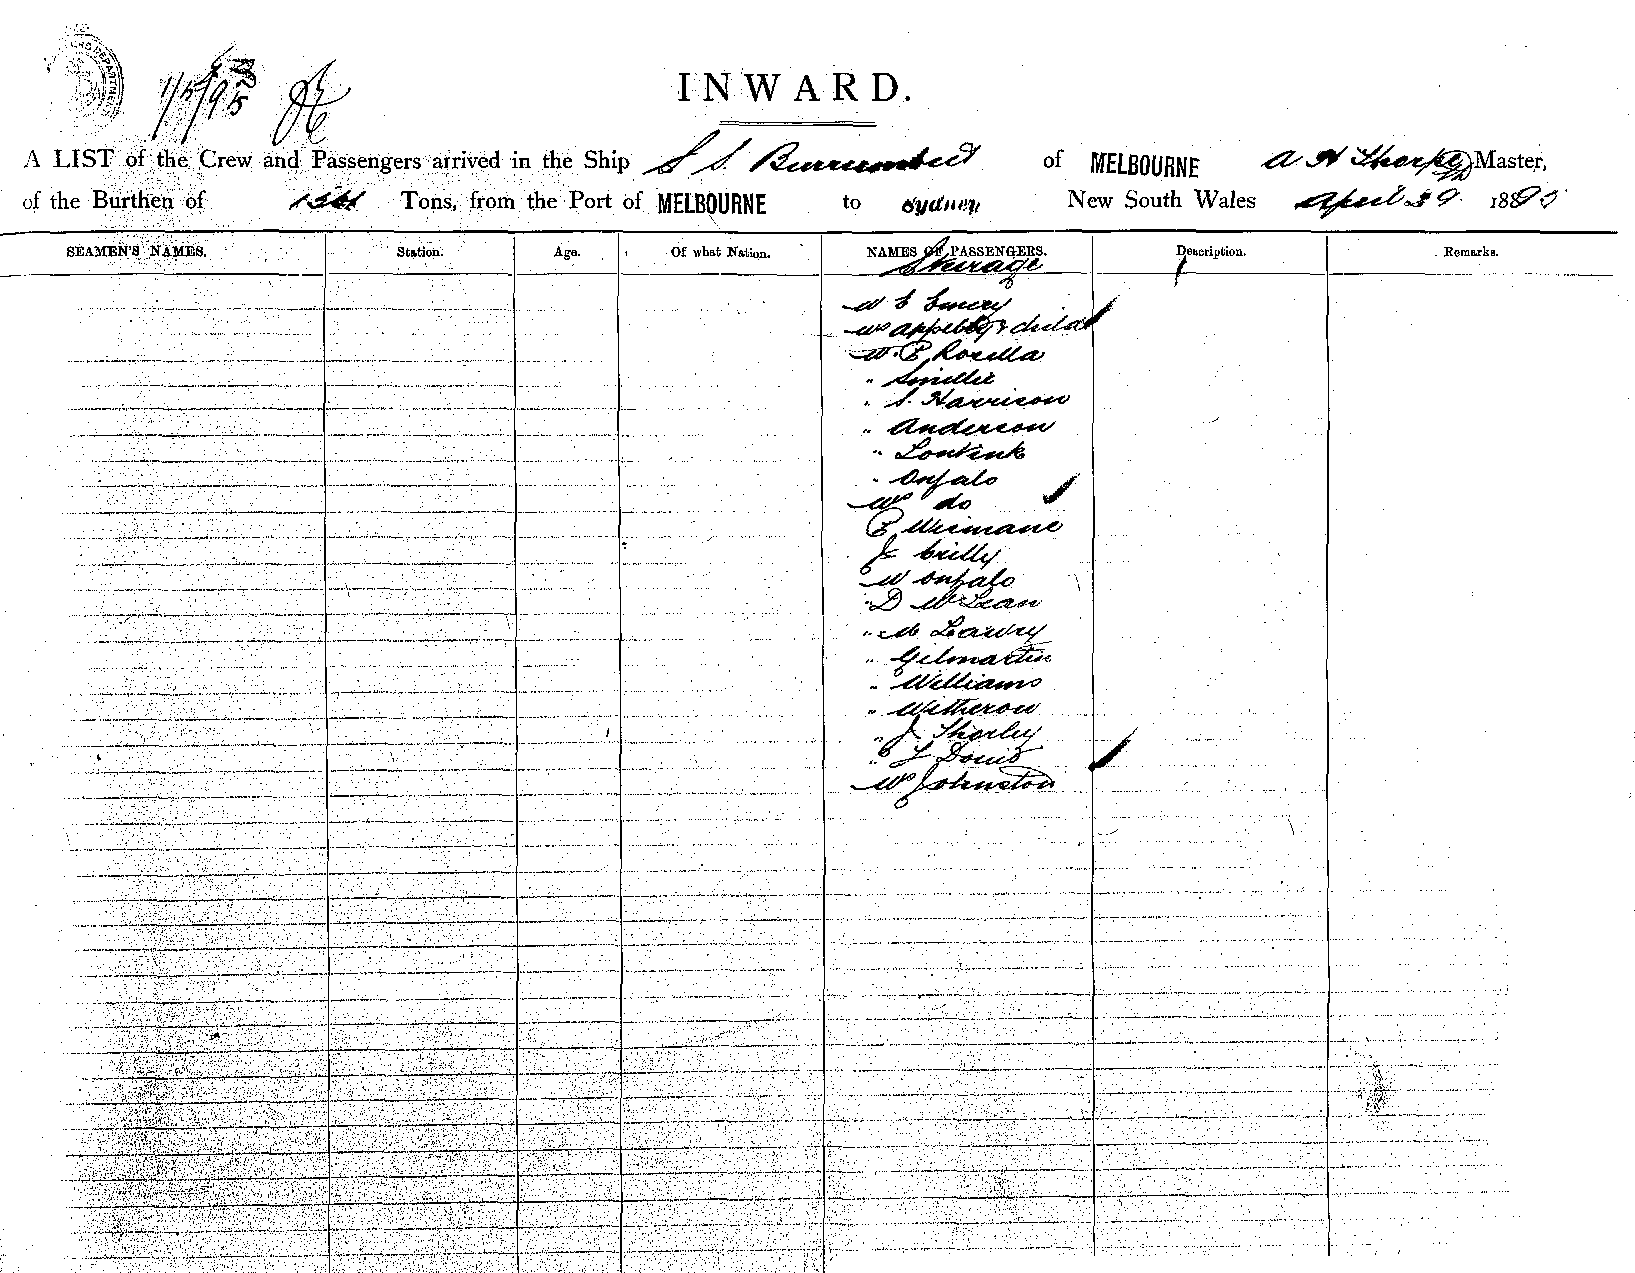 1/5/95
INWARD.
A LIST of the Crew and Passengers arrived in the Ship S S. Burrumbeet of MELBOURNE A H Thorpe Master,
of the Burthen of Tons, from the Port of MELBOURNE to Sydney New South Wales April 29 1895
SEAMEN'S NAMES. Station. Age. Of what Nation. NAMES OF PASSENGERS. Description. Remarks.
Steerage
Emery
Appelby & child
Rosella
" Smellie
" S. Harrison
" Anderson
"
" Onfalo
do
J
Onfalo
" D McLean
" Lawry
" Gilmartin
" Williams
" Witherow
" J. Thorley
"
Johnston